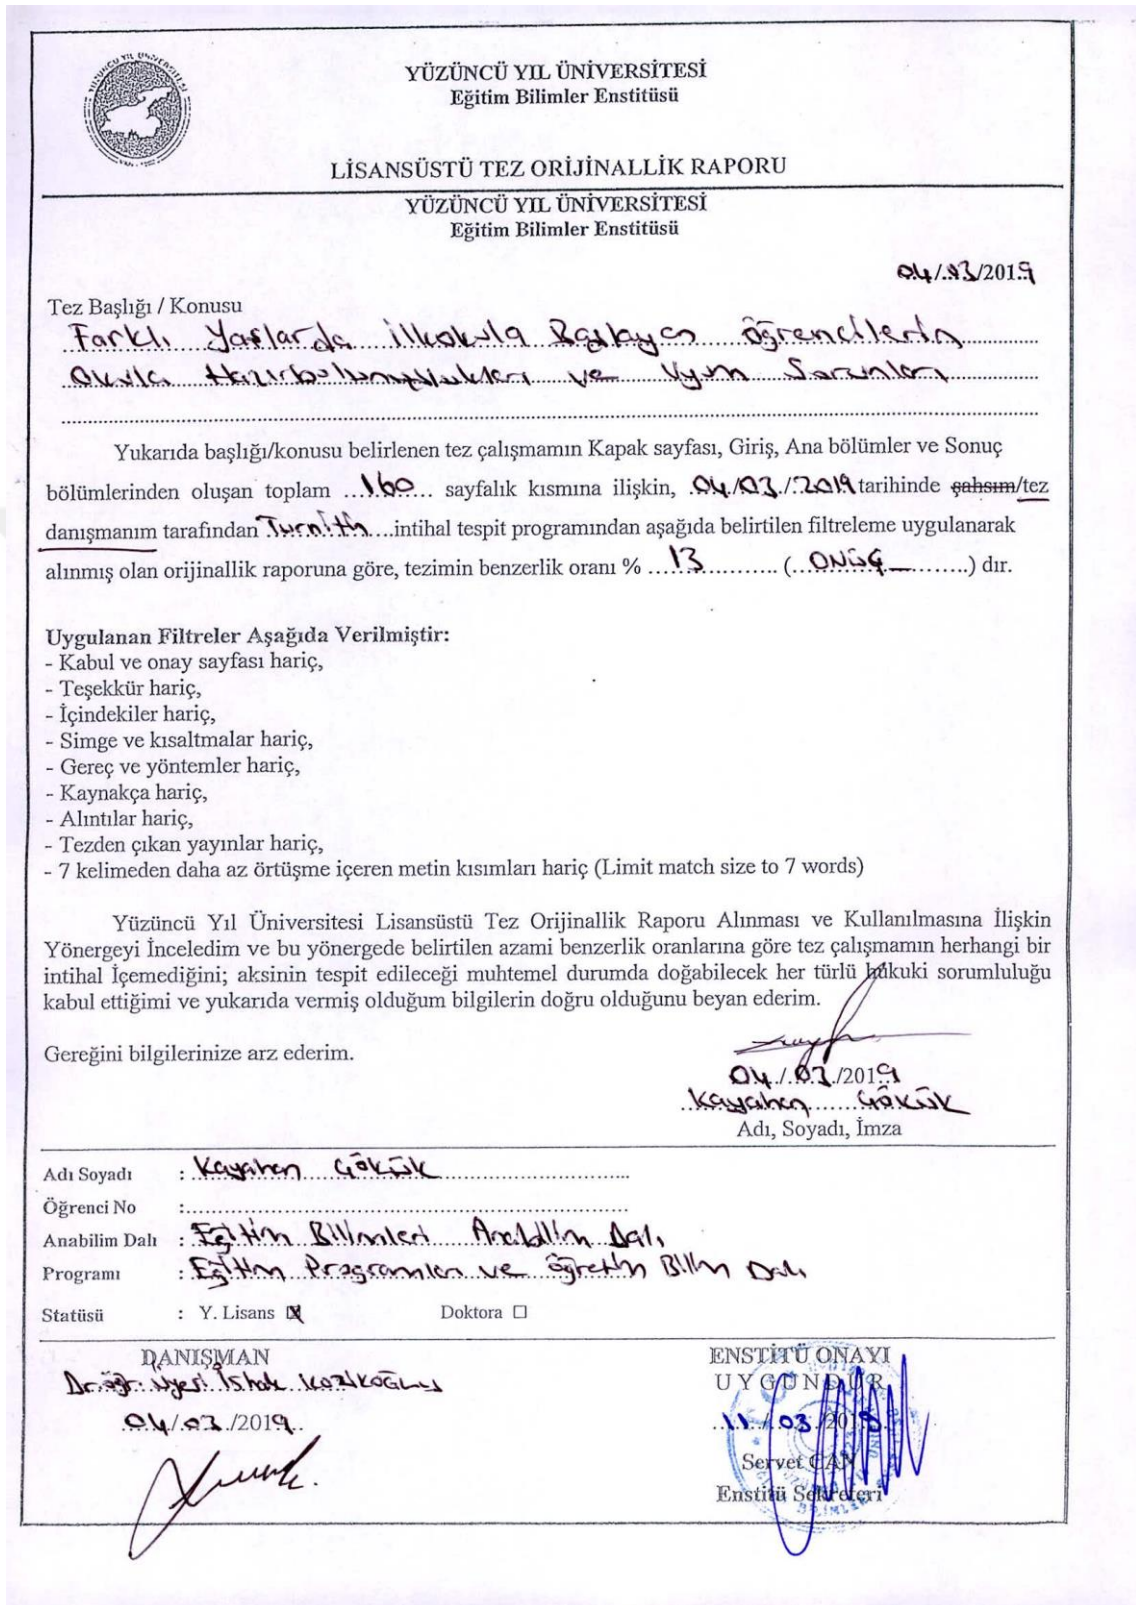 YÜZÜNCÜ YIL ÜNİVERSİTESİ
Eğitim Bilimler Enstitüsü
LİSANSÜSTÜ TEZ ORİJİNALLİK RAPORU
YÜZÜNCÜ YIL ÜNİVERSİTESİ
Eğitim Bilimler Enstitüsü
04/03/2019
Tez Başlığı / Konusu
Farklı Yaşlarda İlkokula Başlayan öğrencilerin
Okula Hazırbulunuşlukları ve Uyum Sorunları
Yukarıda başlığı/konusu belirlenen tez çalışmamın Kapak sayfası, Giriş, Ana bölümler ve Sonuç
bölümlerinden oluşan toplam ...160... sayfalık kısmına ilişkin, 04/03/2019 tarihinde şahsım/tez
danışmanım tarafından Turnitin...intihal tespit programından aşağıda belirtilen filtreleme uygulanarak
alınmış olan orijinallik raporuna göre, tezimin benzerlik oranı % ...13........... (...onüç...........) dır.
Uygulanan Filtreler Aşağıda Verilmiştir:
- Kabul ve onay sayfası hariç,
- Teşekkür hariç,
- İçindekiler hariç,
- Simge ve kısaltmalar hariç,
- Gereç ve yöntemler hariç,
- Kaynakça hariç,
- Alıntılar hariç,
- Tezden çıkan yayınlar hariç,
- 7 kelimeden daha az örtüşme içeren metin kısımları hariç (Limit match size to 7 words)
Yüzüncü Yıl Üniversitesi Lisansüstü Tez Orijinallik Raporu Alınması ve Kullanılmasına İlişkin
Yönergeyi İnceledim ve bu yönergede belirtilen azami benzerlik oranlarına göre tez çalışmamın herhangi bir
intihal İçemediğini; aksinin tespit edileceği muhtemel durumda doğabilecek her türlü hukuki sorumluluğu
kabul ettiğimi ve yukarıda vermiş olduğum bilgilerin doğru olduğunu beyan ederim.
Gereğini bilgilerinize arz ederim.
04/03/2019
Kayahan GÖKÜK
Adı, Soyadı, İmza
Adı Soyadı : Kayahan GÖKÜK
Öğrenci No :
Anabilim Dalı : Eğitim Bilimleri Anabilim Dalı
Programı : Eğitim Programları ve öğretim Bilim Dalı
Statüsü : Y. Lisans ☒ Doktora ☐
DANIŞMAN
Dr. öğr. Üyesi İshak KOZİKOĞLU
04/03/2019
ENSTİTÜ ONAYI
UYGUNDUR
11/03/201
Servet CAN
Enstitü Sekreteri